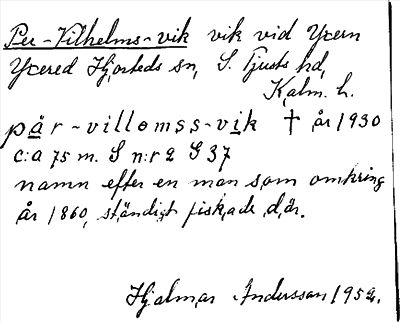 Per-Vilhelms-vik vik vid Yxern
Yxered Hjorteds sn, S. Tjusts hd,
Kalm. l.
pär-villomss-vik † år 1930
c:a 75 m. S n:r 2 S 37
namn efter en man som omkring
år 1860, ständigt fiskade där.
Hjalmar Andersson 1952.